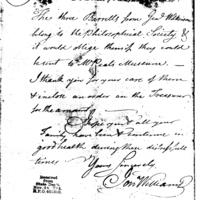 The three Barrells from Genl Wilkinson
belong to the Philosophical Society &
it would oblige them if they could
be sent to Mr Peale's Museum —
I thank you for your care of them
& inclose an order on the Treasurer
for the amount
I hope you & all your
Family have been & continue in
good health during these distressful
times
Yours Sincerely
Jon Williams
Received
from
State Dep't.